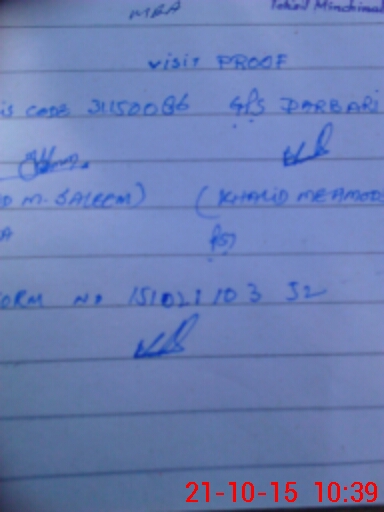 MBA Tohid Minchinaa
visit PROOF
is CODE 31150086 GPS DARBARI
D M. SALEEM) (KHALID MEAMOO
A PST
ORM NO 15102110352
21-10-15 10:39